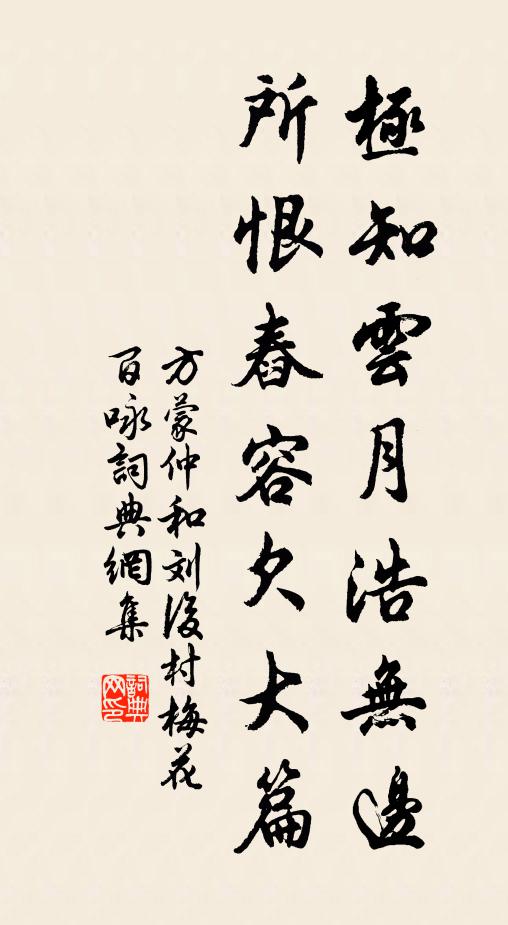 極知雲月浩無邊
所恨舂容欠大篇
方蒙仲和刘後村梅花
百咏詞典網集
詞典网印